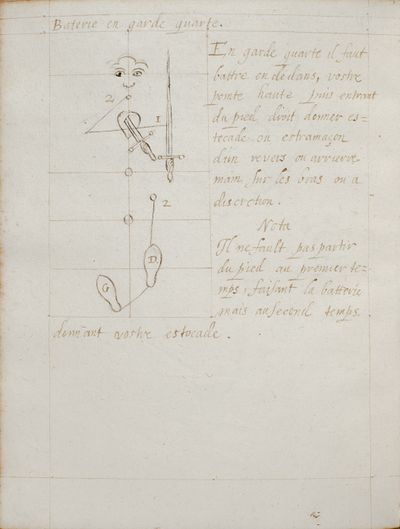 Baterie en garde quarte.
En garde quarte il faut
battre en dedans, vostre
pointe haute puis entrant
du pied droit donner es=
tocade ou estramaçon
d'un revers ou arriere
main sur les bras ou a
discretion.
2
1
2
Nota
Il ne fault pas partir
du pied au premier te=
mps, faisant la batterie
mais au second temps
donnant vostre estocade.
D.
G